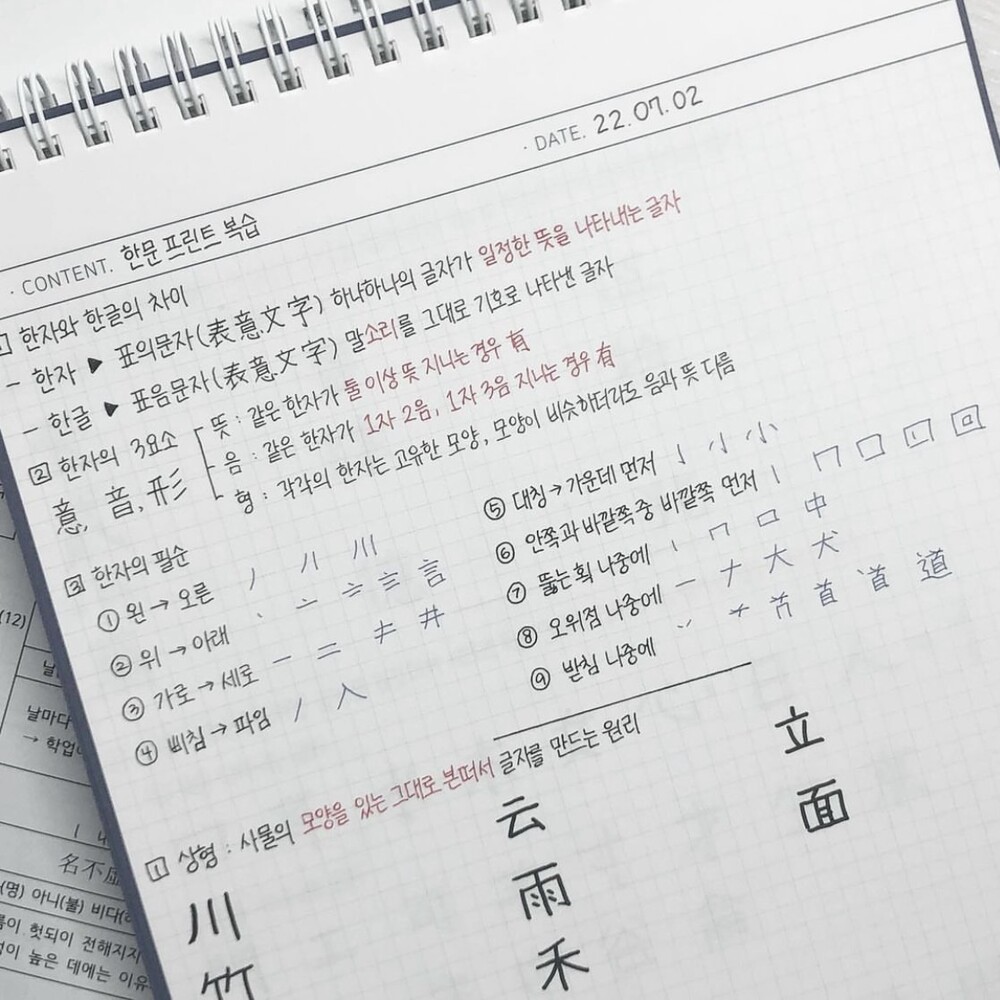 · DATE. 22.07.02
· CONTENT. 한문 프린트 복습
1 한자와 한글의 차이
- 한자 ▶ 표의문자(表意文字) 하나하나의 글자가 일정한 뜻을 나타내는 글자
- 한글 ▶ 표음문자(表意文字) 말소리를 그대로 기호로 나타낸 글자
2 한자의 3요소
뜻 : 같은 한자가 둘 이상 뜻 지니는 경우 有
음 : 같은 한자가 1자 2음, 1자 3음 지니는 경우 有
형 : 각각의 한자는 고유한 모양, 모양이 비슷하더라도 음과 뜻 다름
意, 音, 形
3 한자의 필순
① 왼 → 오른 丿 川
② 위 → 아래 丶 亠 言
③ 가로 → 세로 一 二 キ 井
④ 삐침 → 파임 丿 人
⑤ 대칭 → 가운데 먼저 亅 小 小
⑥ 안쪽과 바깥쪽 중 바깥쪽 먼저 丨 冂 口 回
⑦ 뚫는 획 나중에 丨 冂 口 中
⑧ 오위점 나중에 一 ナ 大 犬
⑨ 받침 나중에 首 道
1 상형 : 사물의 모양을 있는 그대로 본떠서 글자를 만드는 원리
川 云 立
竹 雨 面
禾
(12)
날마다
→ 학업
名不虛
(명) 아니(불) 비다(
이 헛되이 전해지지
이 높은 데에는 이유